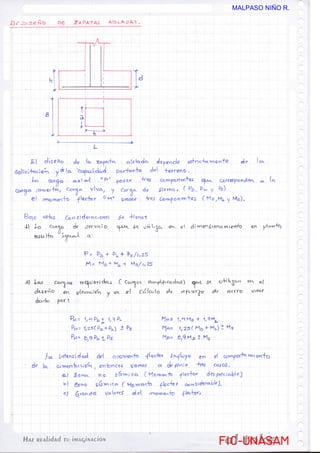 MALPASO NIÑO R.
DISEÑO DE ZAPATAS AISLADAS.
A
h
d
B
a
b
L
El diseño de la zapata aislada depende estrictamente de la
solicitación y la capacidad portante del terreno.
La carga axial "P" posee tres componentes que corresponden a la
carga muerta, carga viva, y carga de sismo (PD, PL, y PS)
el momento flector "M" posee tres componentes (MD, ML y MS).
Bajo estas consideraciones se tienen
1) La carga de servicio que se utiliza en el dimensionamiento en planta
resulta igual a
P = PD + PL + PS/1.25
M = MD + ML + MS/1.25
2) Las cargas requeridas (cargas amplificadas) que se utilizan en el
diseño en elevación y en el cálculo de refuerzo de acero está
dado por:
PU = 1,4 PD + 1,7 PL
MU = 1,4 MD + 1,7 ML
PU = 1,25 (PD + PL) ± PS
MU = 1,25 (MD + ML) ± MS
PU = 0,9 PD ± PS
MU = 0,9 MD ± MS
La intensidad del momento flector influye en el comportamiento
de la cimentación, entonces vamos a definir tres casos.
a) Zona no sísmica (Momento flector despreciable)
b) Zona sísmica (Momento flector considerable).
c) Grandes valores del momento flector.
Haz realidad tu imaginación
FIC-UNASAM